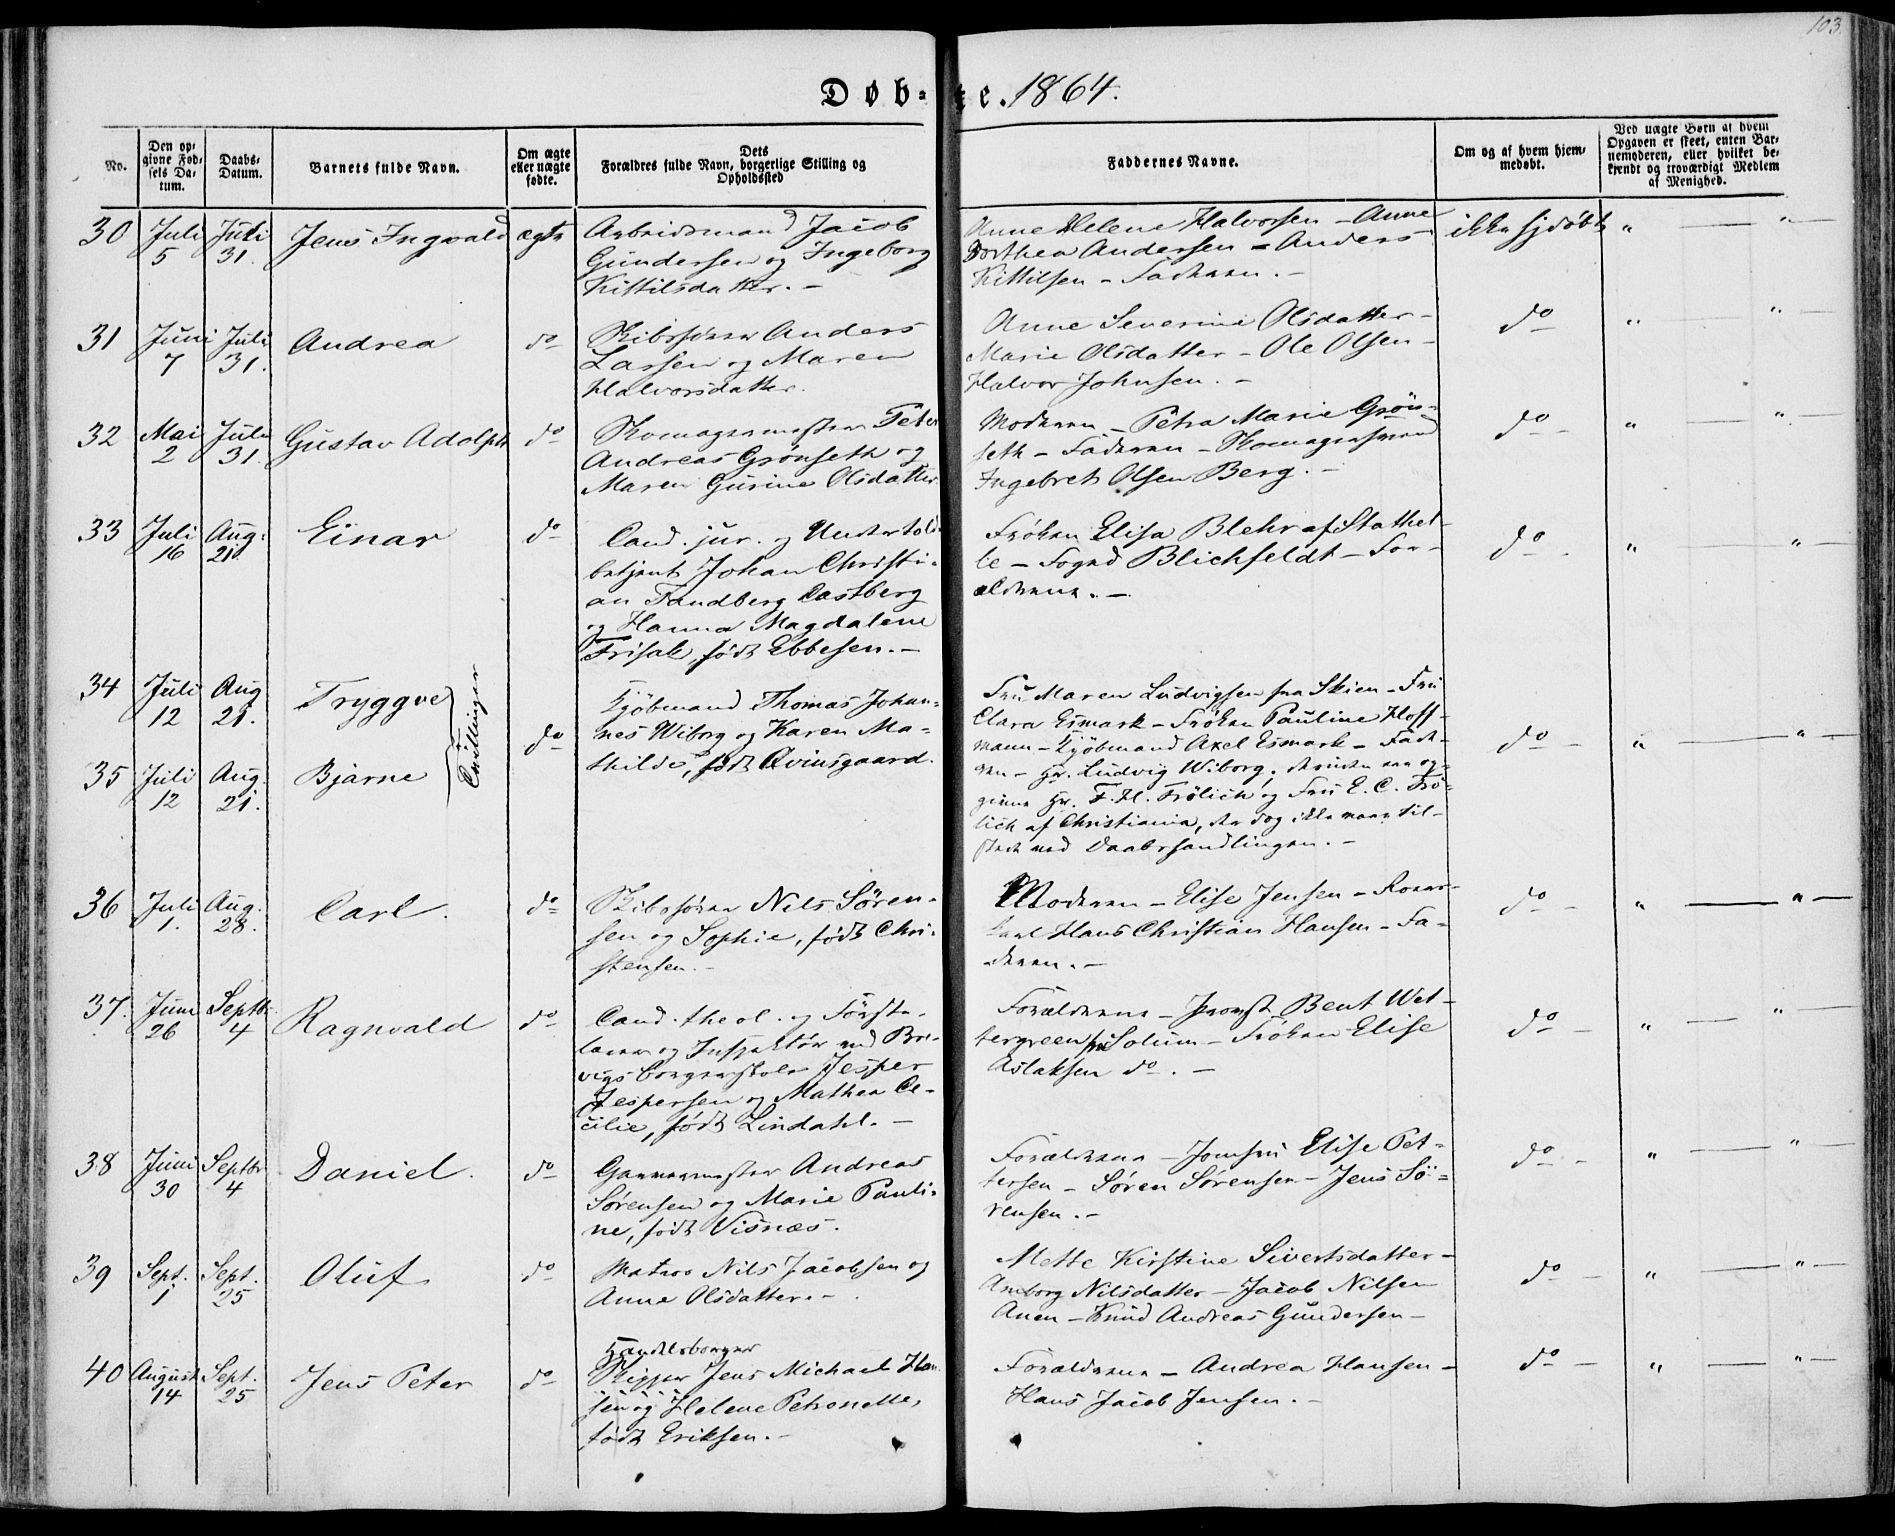 103.
Døb- te. 1864.
No.
Den op-
givne Fød-
sels Da-
tum.
Daabs-
Datum.
Barnets fulde Navn.
Om ægte
eller uægte
fødte.
Dets
Forældres fulde Navn, borgerlige Stilling og
Opholdssted
Faddernes Navne.
Om og af hvem hjem-
medøbt.
Ved uægte Børn af hvem
Opgaven er skeet, enten Bar-
nemoderen, eller hvilket be-
kjendt og troværdigt Medlem
af Menighed.
30 Juli 5 Juli 31. Jens Ingvald ægte
Arbeidsmand Jacob
Gundersen og Ingeborg
Kittilsdatter. -
Anne Helene Halvorsen - Anne
Dorthea Andersen - Anders
Kittilsen - Faderen. -
ikke hjdøbt " "
31 Juni 7 Juli 31. Andrea do
Skibstømr Anders
Larsen og Maren
Halvorsdatter.
Anne Severine Olsdatter -
Marie Olsdatter - Ole Olsen -
Halvor Johnsen. -
do " "
32 Mai 2 Juli 31. Gustav Adolph do
Skomagermester Peter
Andreas Grønseth og
Maren Gurine Olsdatter
Moderen - Petra Marie Grøn-
seth - Faderen - Skomagersvend
Ingebret Olsen Berg. -
do - " "
33 Juli 16 Aug: 21. Einar do
Cand. jur. og Undertold-
betjent Johan Christi-
an Tandberg Castberg
og Hanna Magdalene
Frisak, født Ebbesen. -
Frøken Elisa Blehr af Stathel-
le - Foged Blichfeldt - For-
ældrene. -
do - " "
34 Juli 12 Aug 21. Tryggve
35 Juli 12 Aug. 21. Bjarne
Tvillinger
do
Kjøbmand Thomas Johan-
nes Wiborg og Karen Ma-
thilde, født Qvinsgaard.
Fru Maren Ludvigsen fra Skien - Fru
Clara Esmark - Frøken Pauline Hoff-
mann - Kjøbmand Axel Esmark - Fade-
ren - Hr. Ludvig Wiborg. desuden var op-
givne Hr. F. H. Frölich og Fru E. C. Frö-
lich af Christiania, der dog ikke vare til-
stede ved Daabshandlingen. -
do - " "
36 Juli 1. Aug. 28. Carl. do
Skibstømr Nils Søren-
sen og Sophie, født Chri-
stensen. -
Moderen - Elise Jensen -
Hans Christian Hansen - Fa-
deren. -
do - " "
37. Juni 26 Septbr 4 Ragnvald do
Cand. theol. og Første-
lærer og Inspektør ved Bre-
vigs Borgerskole Jesper
Jespersen og Mathea Ce-
cilie, født Lindahl. -
Forældrene - Provst Bent Wet-
tergreen fra Solum - Frøken Elise
Aslaksen do. -
do - " "
38 Juni 30 Septbr 4 Daniel. do
Garvermester Andreas
Sørensen og Marie Pauli-
ne, født Visnæs.
Forældrene - Jomfru Elise Pet-
tersen - Søren Sørensen - Jens Sö-
rensen. -
do - " "
39 Sept. 1 Sept. 25 Oluf do
Matros Nils Jacobsen og
Anne Olsdatter. -
Mette Kirstine Sivertsdatter -
Amborg Nilsdatter - Jacob Nilsen
Auen - Knud Andreas Gundersen -
do - " "
40 August 14 Sept. 25 Jens Peter do
Handelsborger
Skipper Jens Michael Han-
sen og Helene Petronelle,
født Eriksen. -
Forældrene - Andrea Hansen -
Hans Jacob Jensen. -
do - " "